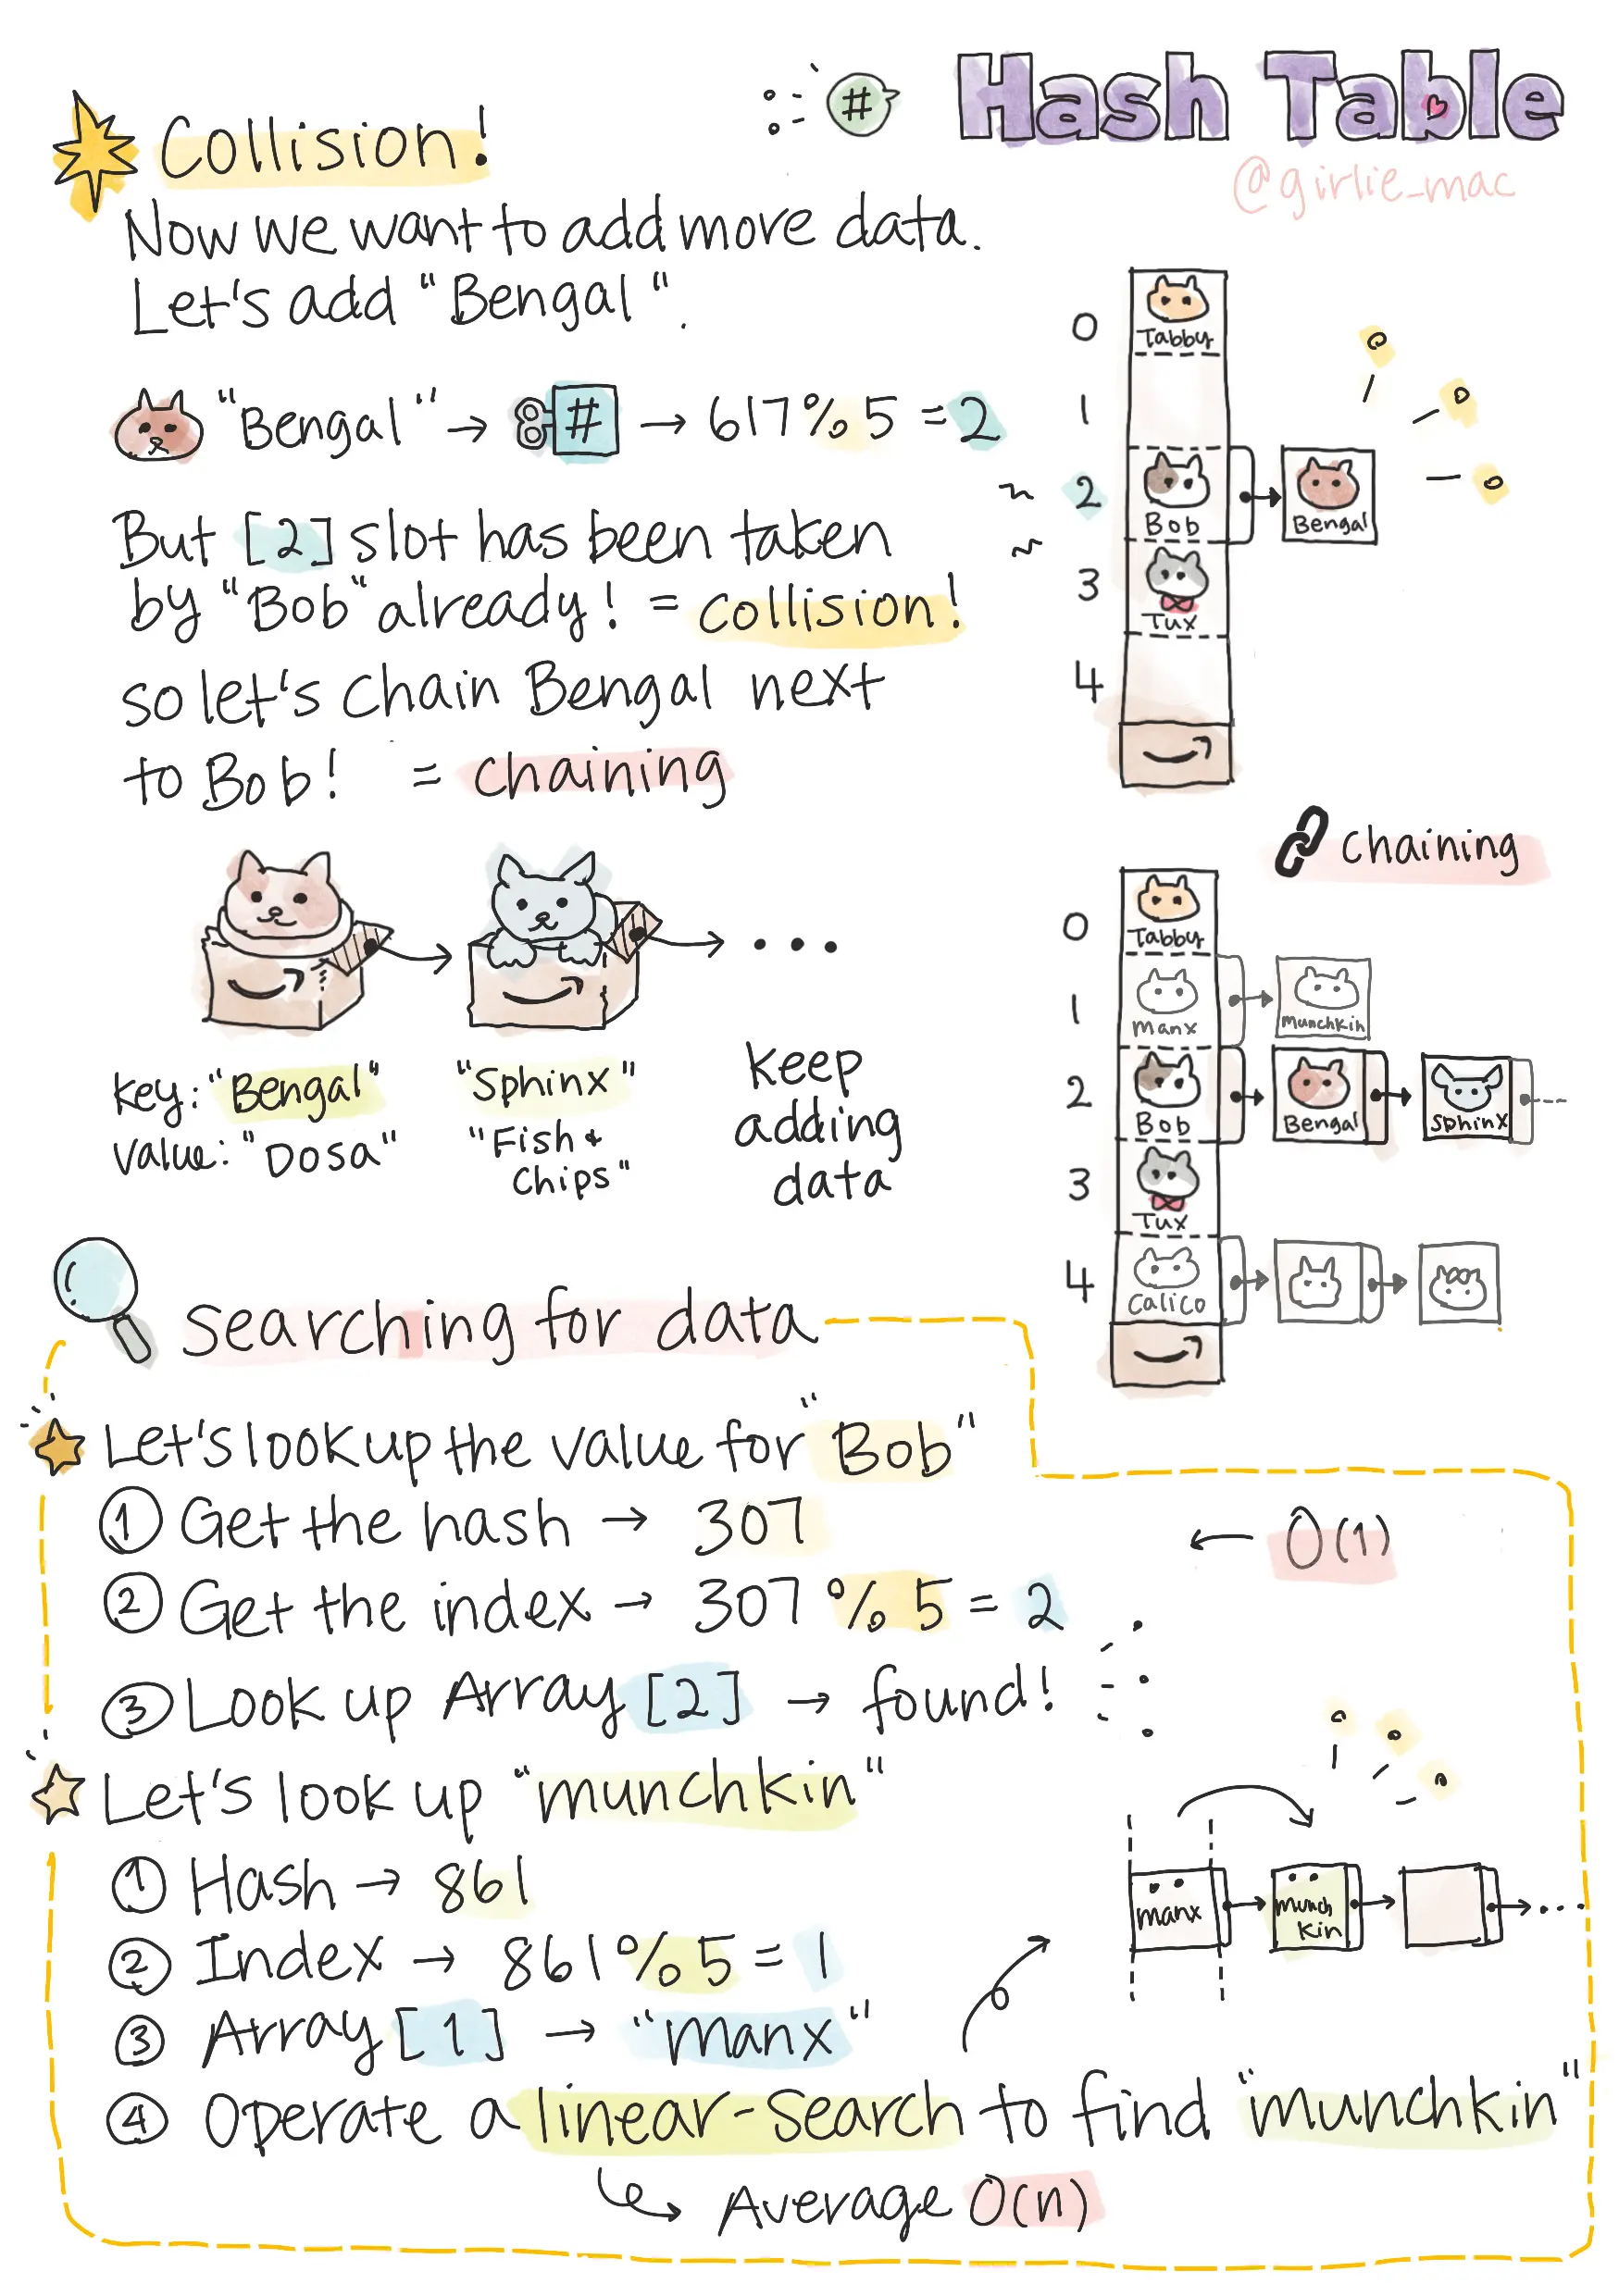 # Hash Table
@girlie_mac
Collision!
Now we want to add more data.
Let's add "Bengal".
"Bengal" → # → 617 % 5 = 2
But [2] slot has been taken
by "Bob" already! = collision!
so let's chain Bengal next
to Bob! = chaining
0
Tabby
1
2
Bob
Bengal
3
Tux
4
chaining
0
Tabby
1
manx
munchkin
2
Bob
Bengal
Sphinx
3
Tux
4
Calico
Key: "Bengal"
Value: "Dosa"
"Sphinx"
"Fish +
Chips"
...
Keep
adding
data
searching for data
Let's look up the value for "Bob"
① Get the hash → 307
② Get the index → 307 % 5 = 2
③ Look up Array [2] → found!
← O(1)
Let's look up "munchkin"
① Hash → 861
② Index → 861 % 5 = 1
③ Array [1] → "manx"
④ Operate a linear-search to find "munchkin"
Average O(n)
manx
munch
kin
...